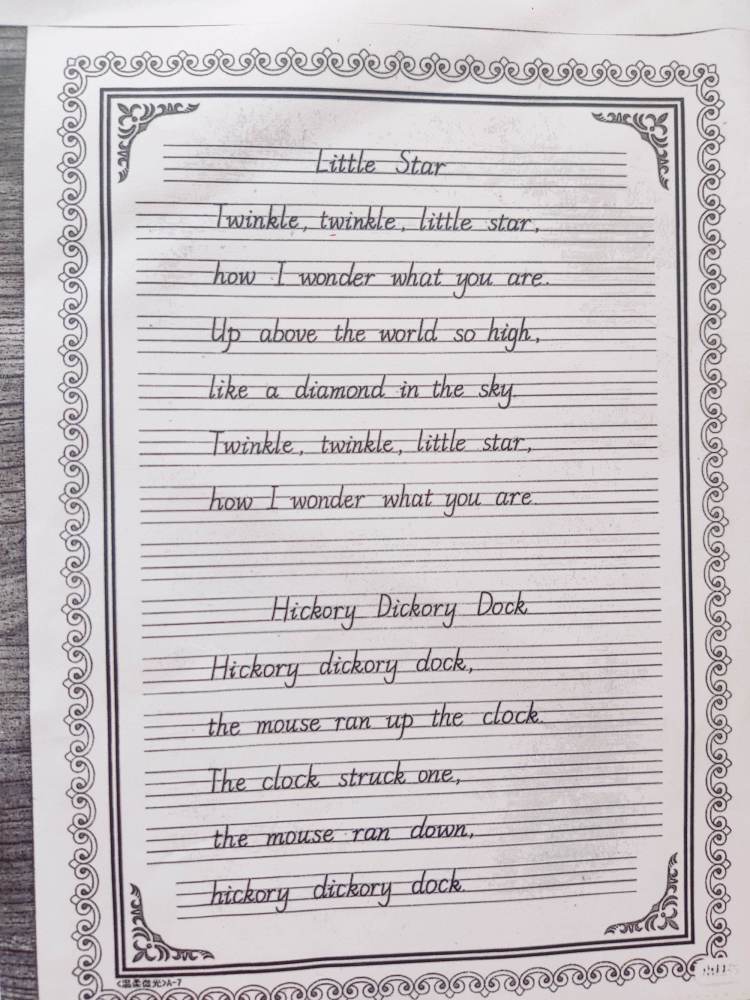 Little Star
Twinkle, twinkle, little star,
how I wonder what you are.
Up above the world so high,
like a diamond in the sky.
Twinkle, twinkle, little star,
how I wonder what you are.
Hickory Dickory Dock
Hickory dickory dock,
the mouse ran up the clock.
The clock struck one,
the mouse ran down,
hickory dickory dock.
<温柔微光>A-7